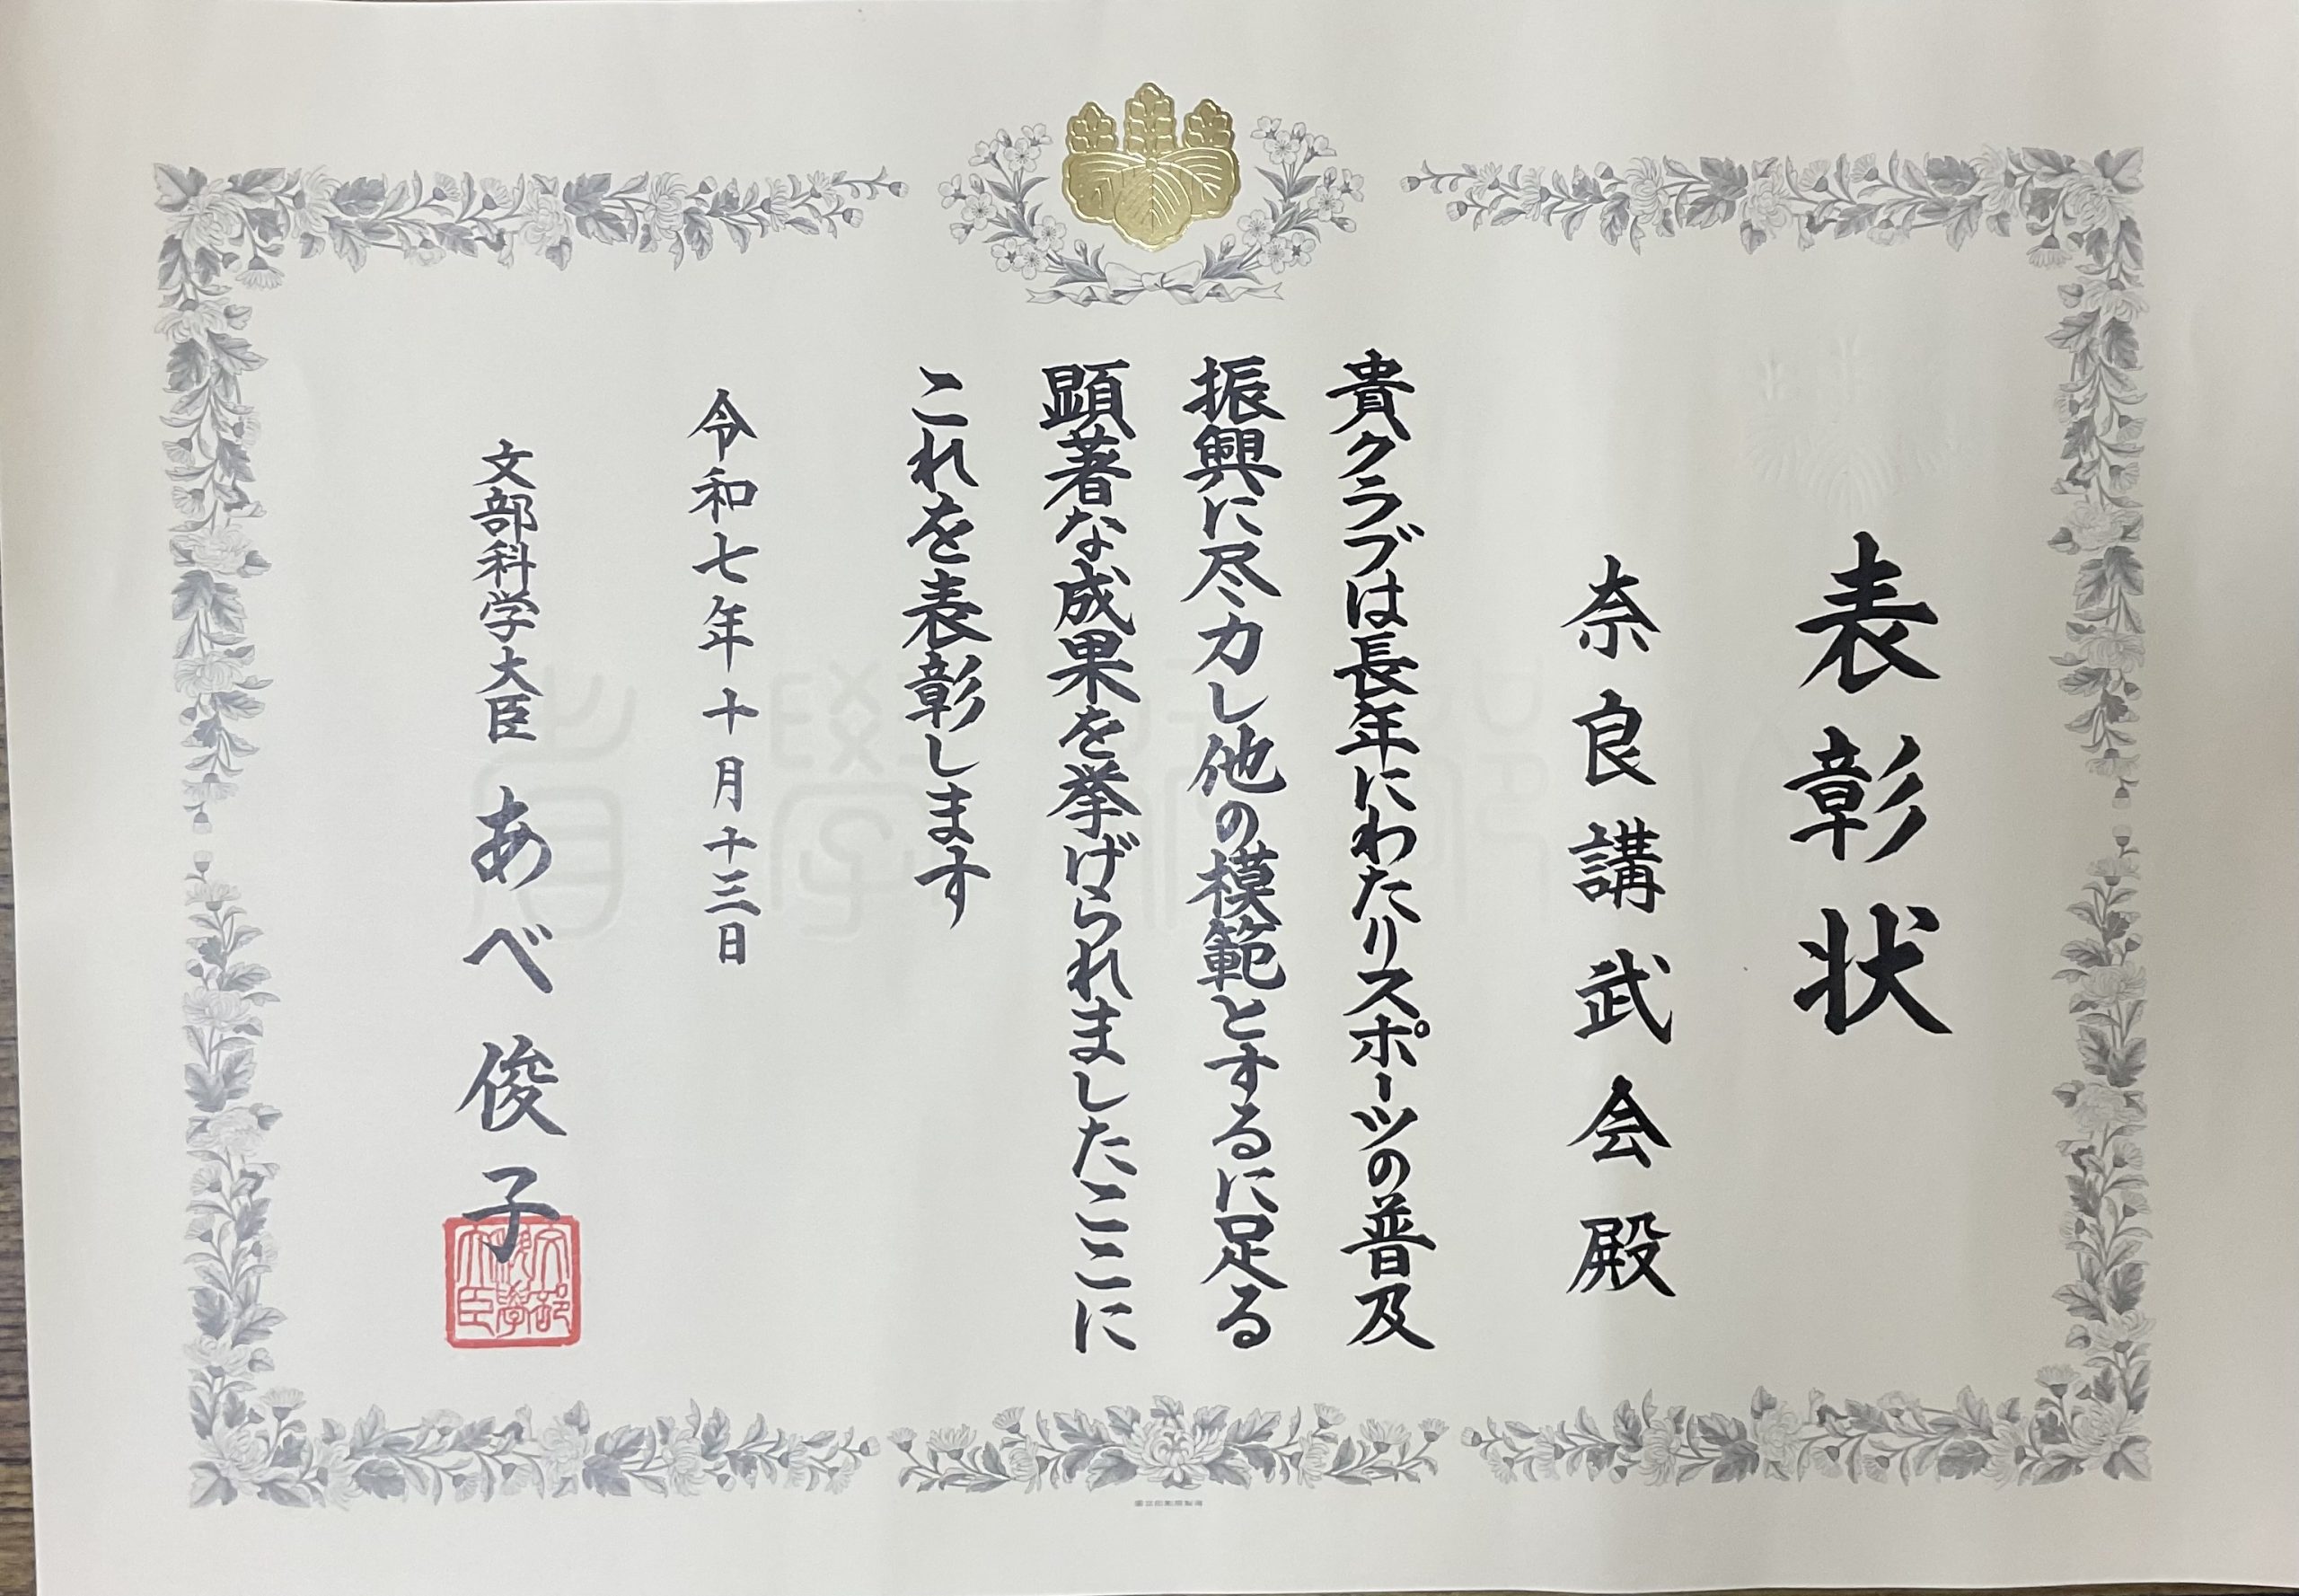 表彰状
奈良講武会殿
貴クラブは長年にわたりスポーツの普及
振興に尽力し他の模範とするに足る
顕著な成果を挙げられましたここに
これを表彰します
令和七年十月十三日
文部科学大臣 あべ俊子
文部科学大臣